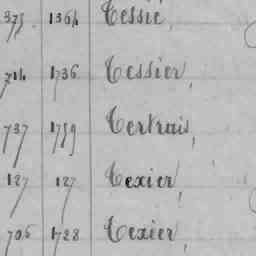 375. 1364 Tessié,
714 1736 Tessier,
737 1759 Tertrais,
127 127 Texier,
706 1728 Texier,